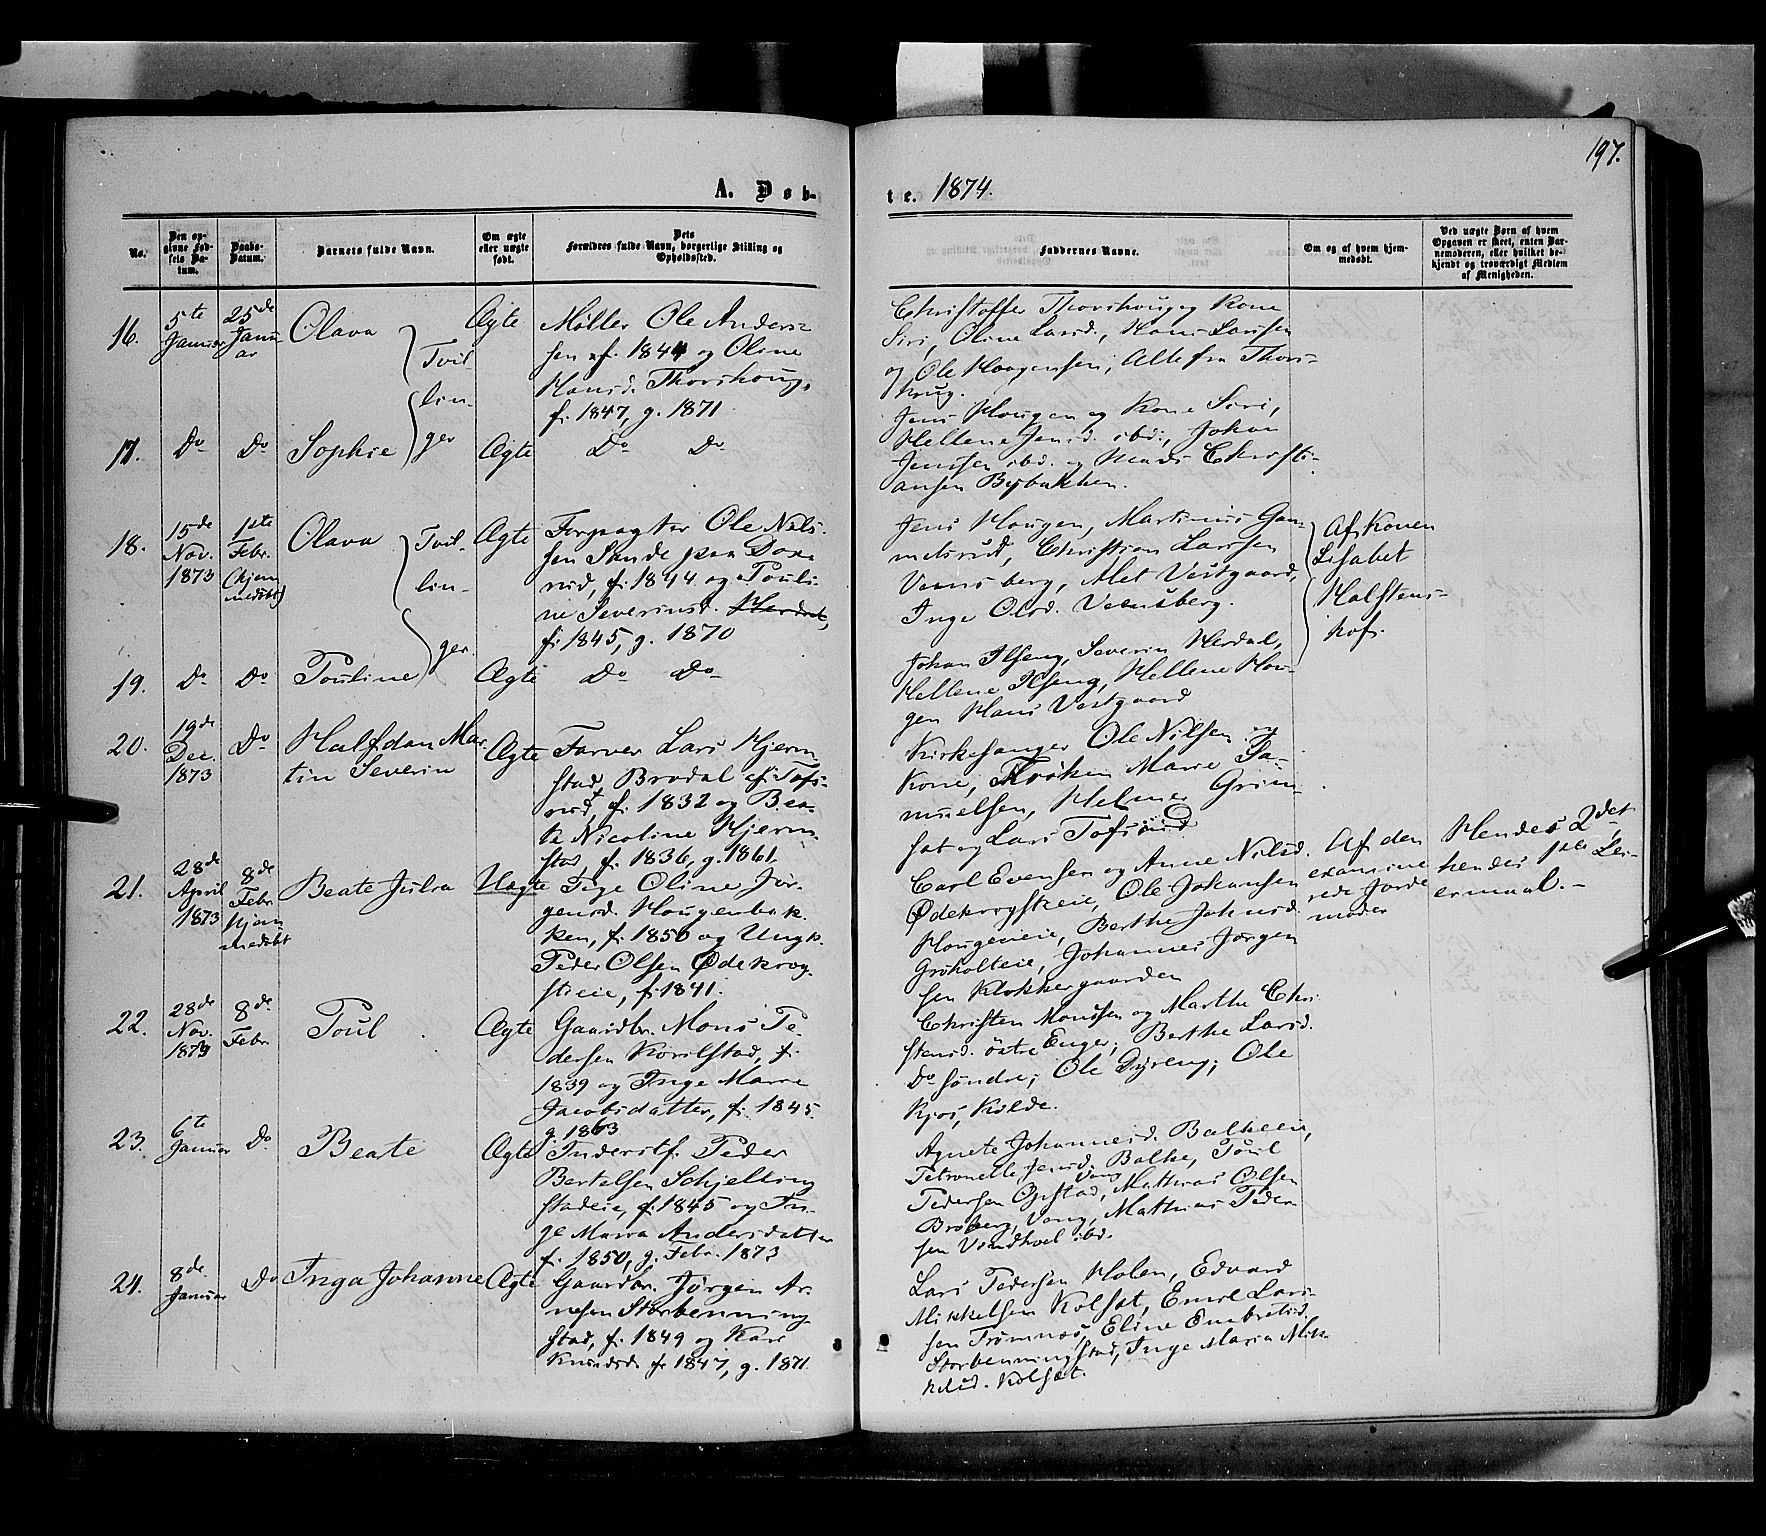 197.
A. Døb-
te. 1874.
No.
Den op-
givne Fød-
sels Da-
tum.
Daabs-
Datum.
Barnets fulde Navn.
Om ægte
eller uægte
født.
Dets
Forældres fulde Navn, borgerlige Stilling og
Opholdssted.
Faddernes Navne.
Om og af hvem hjem-
medøbt.
Ved uægte Børn af hvem
Opgaven er skeet, enten Bar-
nemoderen, eller hvilket be-
kjendt og troværdigt Medlem
af Menigheden.
16.
5te
Januar
25de
Janu-
ar
Olava
Tvil
lin-
ger
Ægte
Møller Ole Anders-
sen f. 1844 og Oline
Hansd. Thorshoug,
f. 1847, g. 1871.
Christoffer Thorshoug og Kone
Siri, Oline Larsd., Hans Larssen
og Ole Haagensen, Alle fra Thors-
houg.
17.
Do
Do
Sophie
Ægte
Do Do
Jens Hougen og Kone Siri,
Hellene Jensd. ibd., Johan
Jenssen ibd. og Mads Christi-
ansen Bybakken.
18.
15de
Nov.
1873
1ste
Febr.
(hjem
medøbt)
Olava
Tvil-
lin-
ger
Ægte
Forpagter Ole Nils-
sen Sande paa Dox-
rud, f. 1844 og Pouli-
ne Severinsd. Herdal,
f. 1845, g. 1870
Jens Hougen, Martinus Gam-
melsrud, Christian Larssen
Vensberg, Alet Vestgaard,
Inge Olsd. Vensberg.
Af Konen
Lisabet
Halstens-
hof.
19.
Do
Do
Pouline
Ægte
Do Do
Johan Ilseng, Severin Herdal,
Hellene Ilseng, Hellene Hou-
gen Hans Vestgaard
20.
19de
Dec.
1873
Do
Halfdan Mar-
tin Severin
Ægte
Farver Lars Hjerm-
stad, Brodal ef. Tofs-
rud, f. 1832 og Bea-
te Nicoline Hjerm-
stad, f. 1836, g. 1861.
Kirkesanger Ole Nilsen og
Kone, Frøken Marie Sa-
muelsen, Helmer Grim-
sat og Lars Tofsrud
21.
28de
April
1873
8de
Febr.
Hjem
medøbt
Beate Julia
Uægte
Pige Oline Jør-
gensd. Hougenbak-
ken, f. 1850 og Ungk.
Peder Olsen Ødekrog-
steie, f. 1841.
Carl Evensen og Anne Nilsd.
Ødekrogsteie, Ole Johansen
Hougeneie, Berthe Johnsd.
Grøholteie, Johannes Jørgen
sen Klokkergaarden
Af den
examine
rede Jorde
moder
Hendes 2det,
hendes 1ste Lei-
ermaal.-
22.
28de
Nov.
1873
8de
Febr.
Poul
Ægte
Gaardbr. Mons Pe-
dersen Korilstad, f.
1839 og Inge Marie
Jacobsdatter, f. 1845.
g. 1863
Christen Monssen og Marthe Chri-
stensd. østre Enger, Berthe Larsd.
Do søndre; Ole Dyreng; Ole
Kjos, Kolde.
23.
6te
Januar
Do
Beate
Ægte
Inderstf. Peder
Bertelsen Schjelling
stadeie, f. 1845 og In-
ge Maria Andersdatter
f. 1850, g. Febr. 1873
Agnete Johannesd. Balkeeie,
Petronelle Jensd. Balke, Poul
Pedersen Opstad, Vang Mathias Olsen
Broberg, Vang, Mathias Peder-
sen Vindhoel ibd.
24.
8de
Januar
Do
Inga Johanne
Ægte
Gaardbr. Jørgen Ar-
nesen Storbenning-
stad, f. 1849 og Kari
Knudsd. f. 1847, g. 1871.
Lars Pedersen Holen, Edvard
Mikkelsen Kolsæt, Emil Lars-
sen Trømnæs, Eline Embretsd.
Storbenningstad, Inge Maria Mik-
kelsd. Kolsæt.